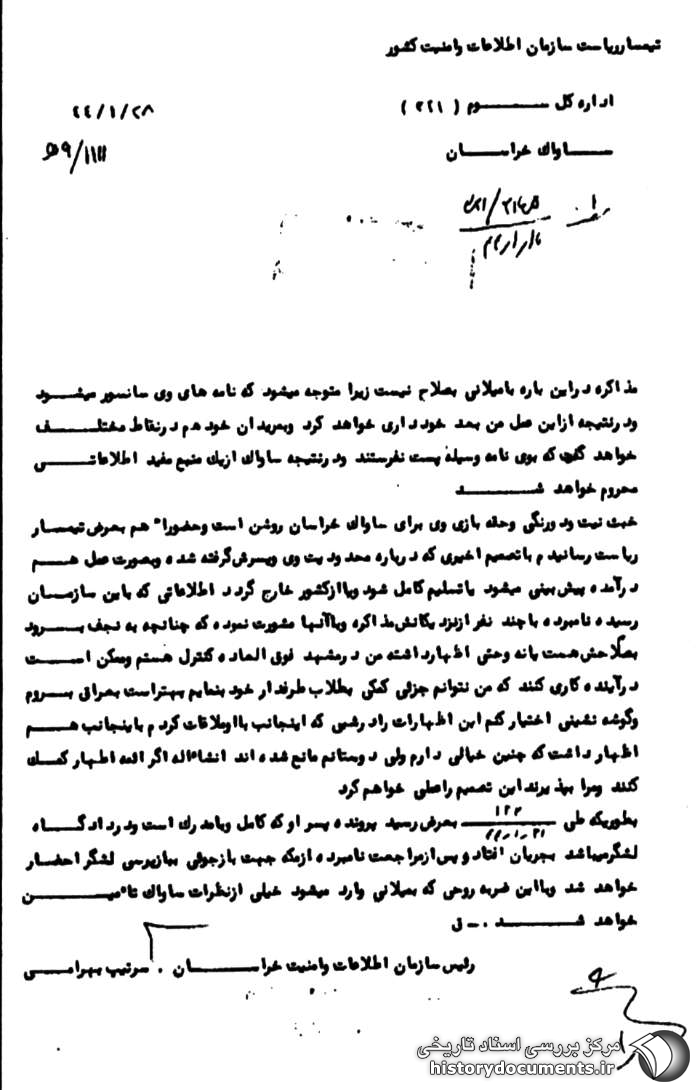 تیمسار ریاست سازمان اطلاعات وامنیت کشور
اداره کل سوم ( ۳۲۱ )
۴۴/۱/۲۸
ساواک خراسان
مذاکره دراین باره بامیلانی بصلاح نیست زیرا متوجه میشود که نامه های وی سانسور میشود
ودرنتیجه ازاین عمل من بعد خودداری خواهد کرد وبمریدان خود هم درنقاط مختلف
خواهد گفت که بوی نامه وسیلهٔ پست نفرستند ودرنتیجه ساواک ازیک منبع مفید اطلاعاتی
محروم خواهد شد
خبث نیت ودورنگی وحقه بازی وی برای ساواک خراسان روشن است وحضورا" هم بعرض تیمسار
ریاست رسانیدم باتصمیم اخیری که درباره محدودیت وی وپسرش گرفته شده وبصورت عمل هم
درآمده پیش بینی میشود یاتسلیم کامل شود ویاازکشور خارج گردد اطلاعاتی که باین سازمان
رسیده نامبرده باچند نفر ازنزدیکانش مذاکره وباآنها مشورت نموده که چنانچه به نجف برود
بصلاحش هست یانه وحتی اظهارداشته من درمشهد فوق العاده کنترل هستم وممکن است
درآینده کاری کنند که من نتوانم جزئی کمکی بطلاب طرفدار خود بنمایم بهتراست بعراق بروم
وگوشه نشینی اختیار کنم این اظهارات رادرشبی که اینجانب بااوملاقات کردم باینجانب هم
اظهار داشت که چنین خیالی دارم ولی دوستانم مانع شده اند انشاءاله اگر ائمه اطهار کمک
کنند ومرا بپذیرند این تصمیم راعملی خواهم کرد
بطوریکه طی بعرض رسید پرونده پسر او که کامل وبامدرک است ودردادگاه
لشگرمیباشد بجریان افتاد وپس ازمراجعت نامبرده ازمکه جهت بازجوئی ببازپرسی لشگر احضار
خواهد شد وبااین ضربه روحی که بمیلانی وارد میشود خیلی ازنظرات ساواک تاٴمین
خواهد شد .ـ ق
رئیس سازمان اطلاعات وامنیت خراسان . سرتیپ بهرامی
مرکز بررسی اسناد تاریخی
historydocuments.ir